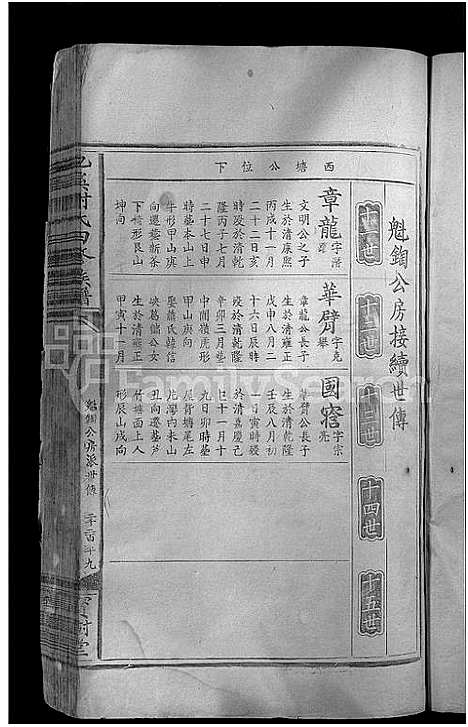 魁鋾公房接續世傳
十一世
十二世
十三世
十四世
十五世
西塘公位下
章龍
文明公之子
生於清康熙
丙戌十一月
二十三日亥
時歿於清乾
隆丙子七月
二十七日申
時墓本山上
午形甲山庚
向遷墓新茶
下 形艮山
坤向
華臂 字克
章龍公長子
生於清雍正
戊申八月二
十六日辰時
歿於清乾隆
辛卯三月墓
中間嶺虎形
甲山庚向
娶蕭氏韓信
峽葛儲公女
甲寅十一月
國窓 字宗亮
華臂公長子
生於清乾隆
壬辰八月初
一日寅時歿
於清嘉慶己
巳十一月十
九日卯時墓
尾背塘尾左
花灣內未山
丑向遷墓芦
竹塘面上人
形辰山戌向
魁鋾公房派世傳
FamilySearch